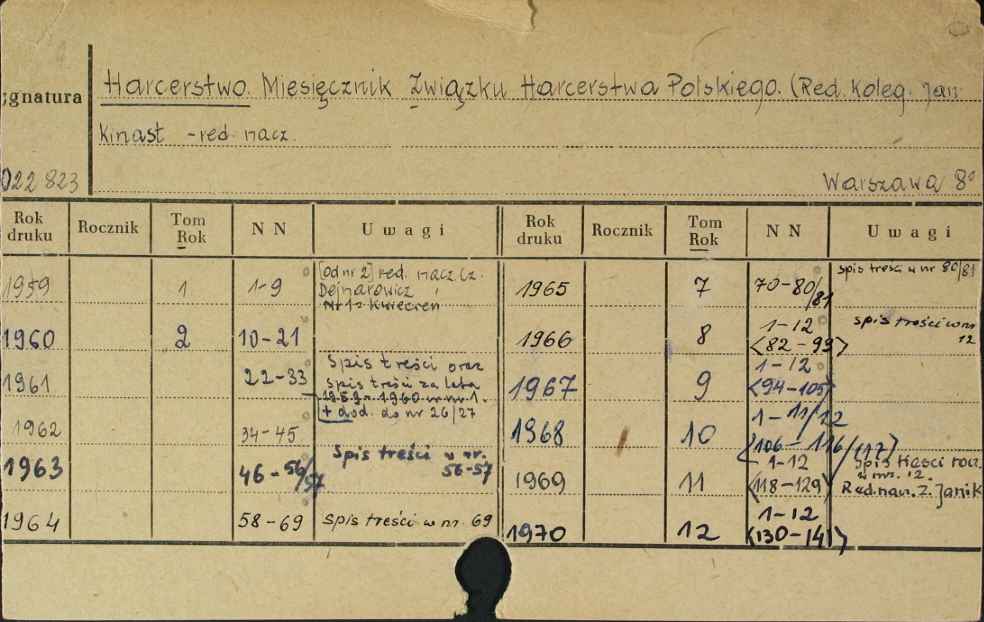 Harcerstwo. Miesięcznik Związku Harcerstwa Polskiego. (Red. Koleg. Jan
gnatura
Kinast - red. nacz.
022 823
Warszawa 8°
Rok druku Rocznik Tom Rok N N Uwagi Rok druku Rocznik Tom Rok N N Uwagi
1959 1 1-9 [od nr 2] red. nacz. Cz.
Dejnarowicz
Nr 1 = kwiecień
1960 2 10-21
1961 22-33 Spis treści oraz
spis treści za lata
1959 r. 1960 w nr 1.
+ dod. do nr 26/27
1962 34-45
1963 46-56/57 Spis treści w nr.
56-57
1964 58-69 Spis treści w nr 69
1965 7 70-80/81 spis treści w nr 80/81
1966 8 1-12 spis treści w nr
<82-93> 12
1967 9 1-12
<94-105>
1968 10 1-11/12
<106-116/117>
1969 11 1-12 Spis treści rocz.
<118-129> w nr. 12.
Red. nacz. Z. Janik
1970 12 1-12
<130-141>